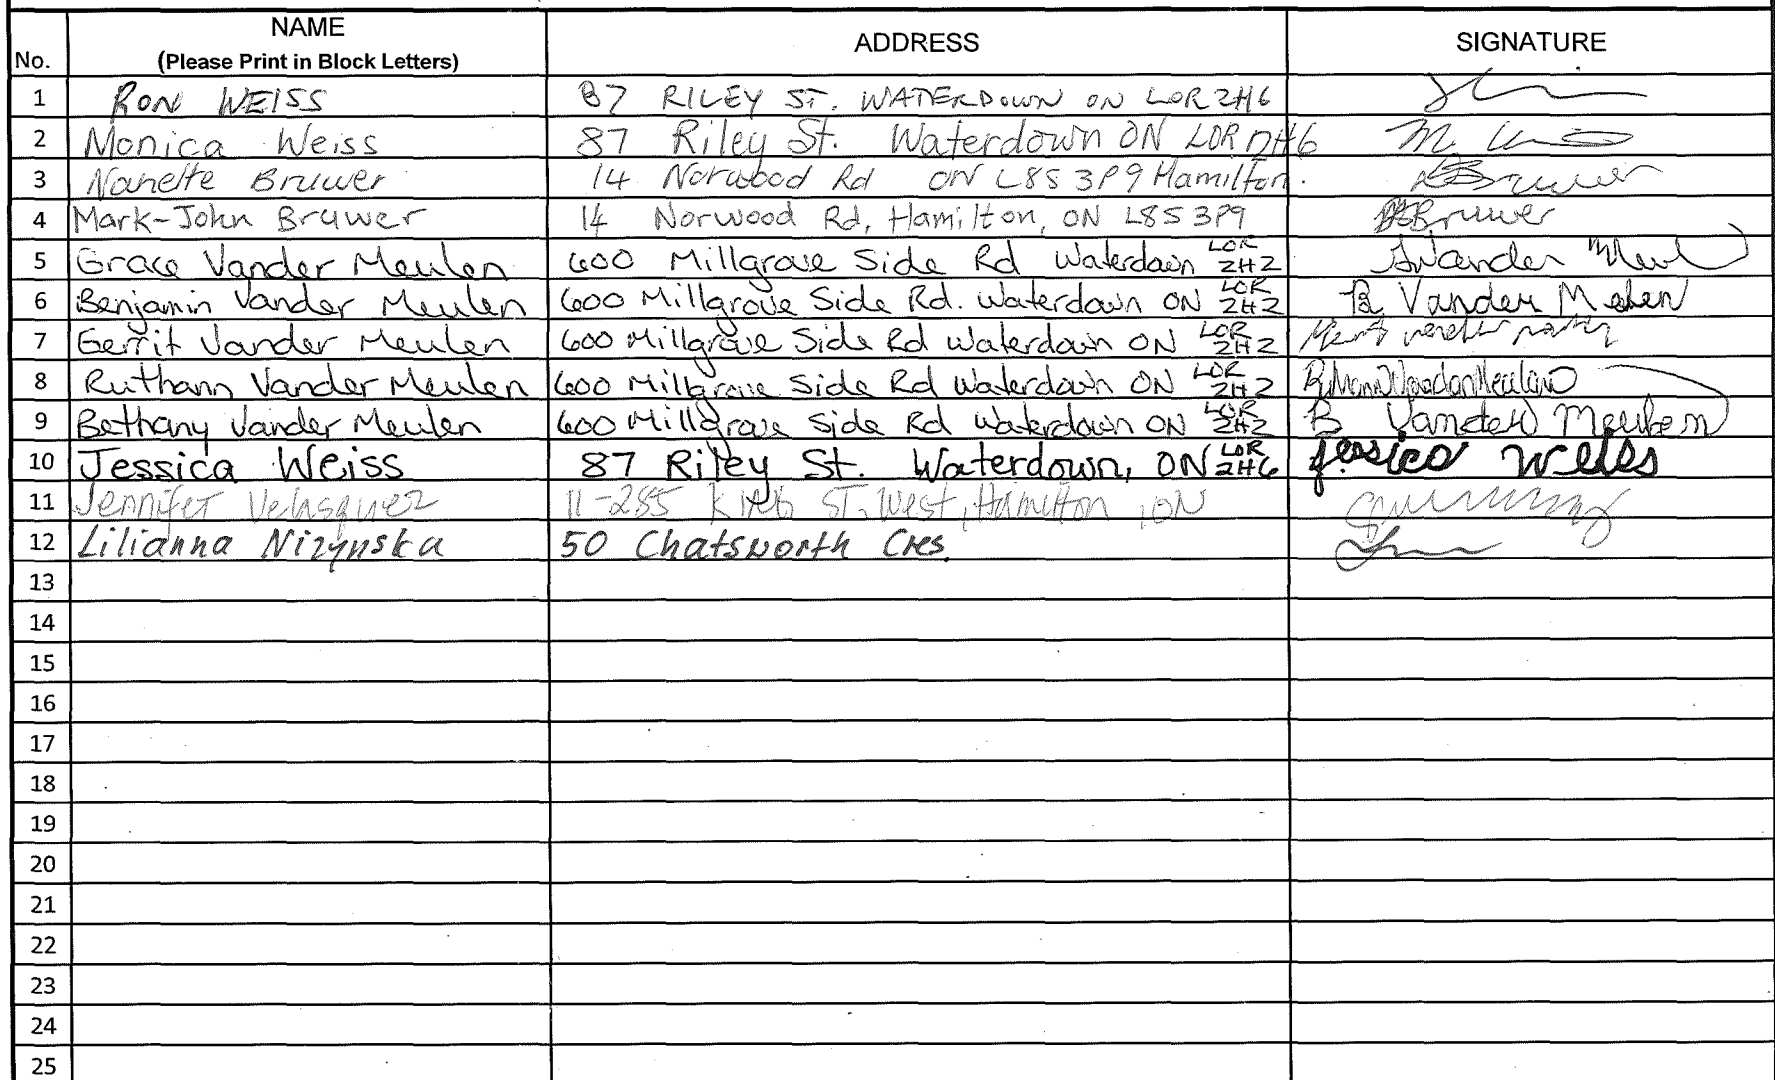 No. NAME (Please Print in Block Letters) ADDRESS SIGNATURE
1 RON WEISS 87 RILEY ST. WATERDOWN ON LOR 2H6
2 Monica Weiss 87 Riley St. Waterdown ON LOR 2H6 M.
3 Nanette Bruwer 14 Norwood Rd ON L8S 3P9 Hamilton. Bruwer
4 Mark-John Bruwer 14 Norwood Rd, Hamilton, ON L8S 3P9 Bruwer
5 Grace Vander Meulen 600 Millgrove Side Rd Waterdown LOR 2H2 Vander Meul
6 Benjamin Vander Meulen 600 Millgrove Side Rd. Waterdown ON LOR 2H2 B Vander Meulen
7 Gerrit Vander Meulen 600 Millgrove Side Rd Waterdown ON LOR 2H2
8 Ruthann Vander Meulen 600 Millgrove Side Rd Waterdown ON LOR 2H2
9 Bethany Vander Meulen 600 Millgrove Side Rd Waterdown ON LOR 2H2 B Vander Meulen
10 Jessica Weiss 87 Riley St. Waterdown, ON LOR 2H6 Jessica Weiss
11 Jennifer Velasquez 11-285 King ST. West, Hamilton, ON
12 Lilianna Nizynska 50 Chatsworth Cres.
13
14
15
16
17
18
19
20
21
22
23
24
25